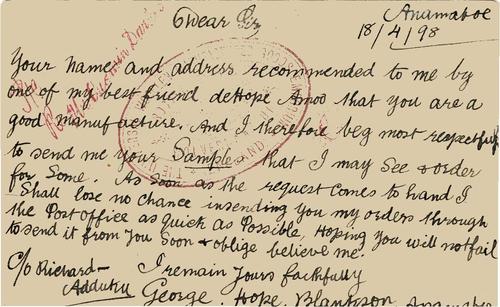 Anamaboe
Dear Sir
18/4/98
Your Name and address recommended to me by
one of my best friend deHope Amoo that you are a
good manufacture. And I therefore beg most respectful
to send me your Samples that I may See & order
for Some. As Soon as the request comes to hand I
Shall lose no chance in sending you my orders through
the Post office as quick as Possible, Hoping you will not fail
to send it from you Soon & oblige believe me.
C/o Richard
I remain Yours faithfully
George. Hope. Blankson